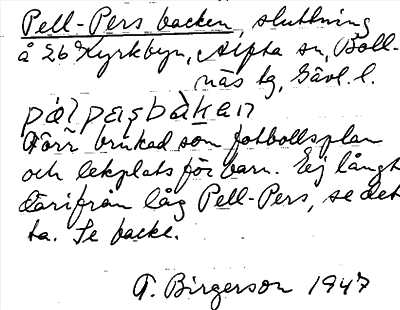 Pell-Pers backen, sluttning
å 26 Kyrkbyn, Alfta sn, Boll-
näs tg, Gävl. l.
pælpæʂbakan
Förr brukad som fotbollsplan
och lekplats för barn. Ej långt
därifrån låg Pell-Pers, se det-
ta. Se backe.
T. Birgerson 1947